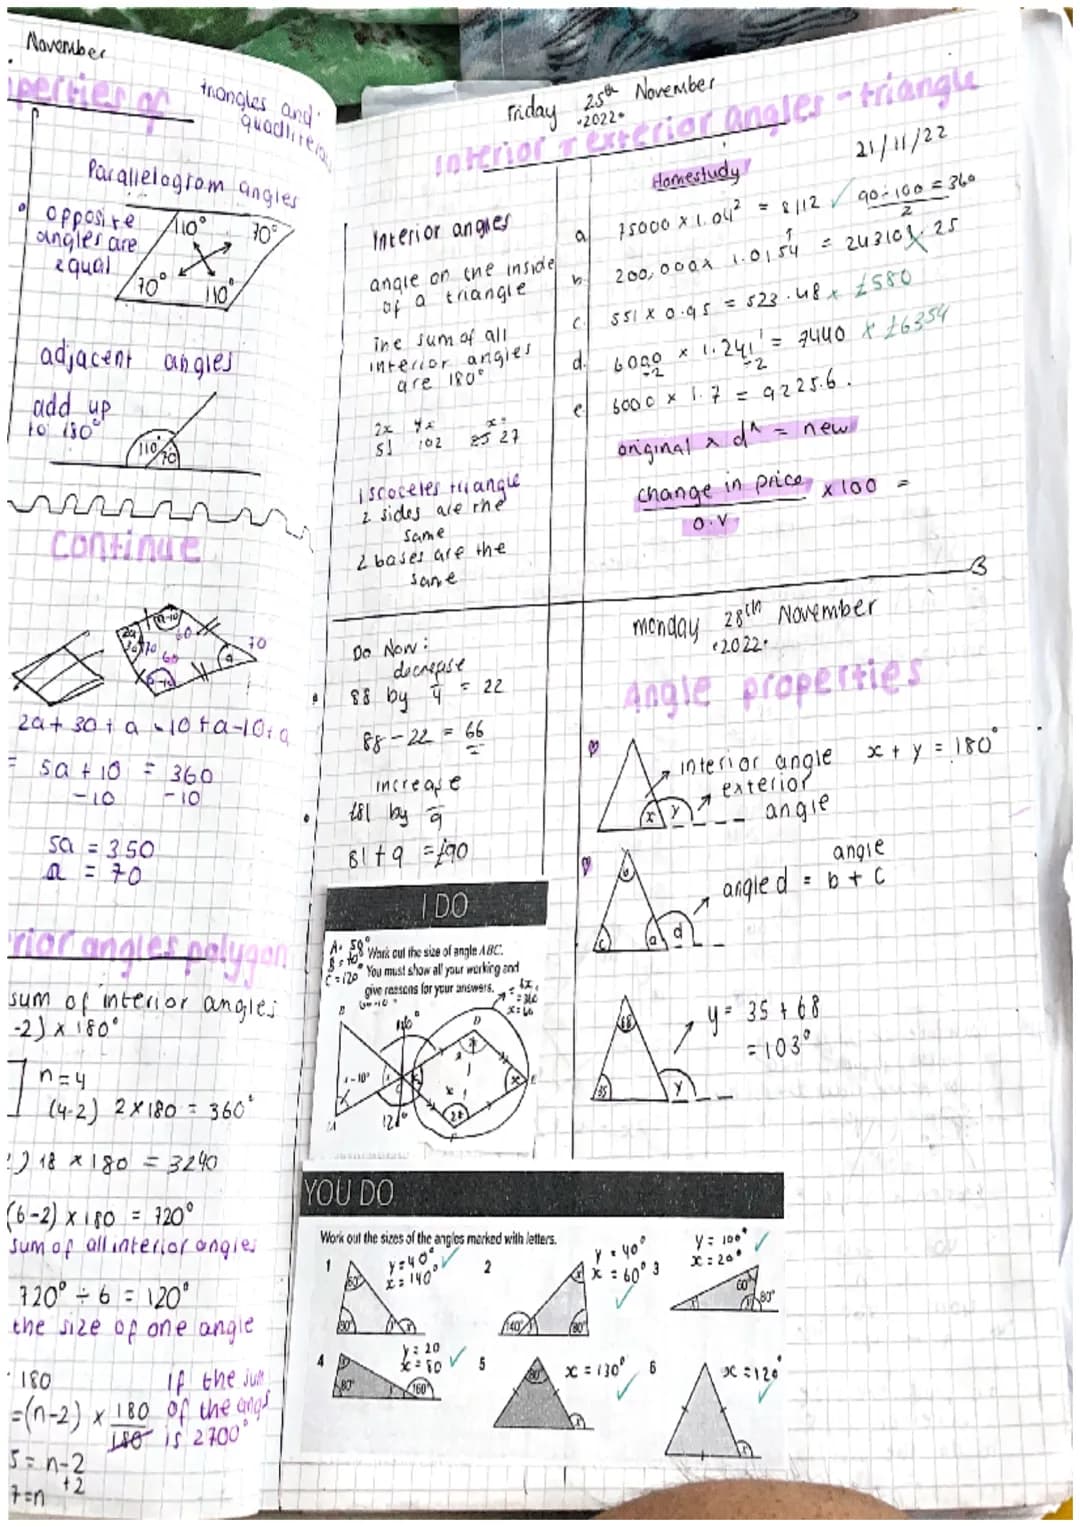 November
perties of
triangles and
Parallelogram angles
opposite
angles are
equal
110°
70°
70°
110°
adjacent angles
add up
to 180°
110°
70
continue
70
2a + 30 + a - 10 + a - 10 + a
= 5a + 10 = 360
-10 -10
5a = 350
a = 70
rior angles polygon
sum of interior angles
-2) x 180°
n = 4
(4-2) 2 x 180 = 360°
18 x 180 = 3240
(6-2) x 180 = 720°
sum of all interior angles
720° ÷ 6 = 120°
the size of one angle
180
if the sum
=(n-2) x 180 of the angs
180 is 2700°
5 = n-2
+2
7 = n
Friday 25th November
·2022·
Interior & exterior angles - triangle
Interior angles
angle on the inside
of a triangle
The sum of all
interior angles
are 180°
2x 4x x=
51 102 27
isoceles triangle
2 sides are the
same
2 bases are the
same
Homestudy
21/11/22
a 75000 x 1.04² = 8112
90 - 100 = 360
2
b. 200,000 x 1.0154
c. 551 x 0.95 = 523.48 x £580
d. 6000 x 1.241 = 7440 x £6354
÷2 ÷2
e 6000 x 1.7 = 9225.6.
original x d^ = new
change in price x 100 =
o.v
Do Now:
decrease
88 by 4 = 22
88 - 22 = 66
increase
£81 by 9
81 + 9 = £90
I DO
A = 58°
C = 120°
Work out the size of angle ABC.
You must show all your working and
give reasons for your answers.
D
x
2x
F
YOU DO
Work out the sizes of the angles marked with letters.
1
y = 40°
x = 140°
60°
80°
2
y = 40°
x = 60°
140°
80°
3
y = 100°
x = 20°
60°
80°
4
y = 20
x = 80
80°
160°
5
x = 130°
80°
6
x = 120°
monday 28th November
·2022·
Angle properties
interior angle x + y = 180°
exterior
angle
x y
angle
angle d = b + c
b
c a d
y = 35 + 68
= 103°
68
35 y